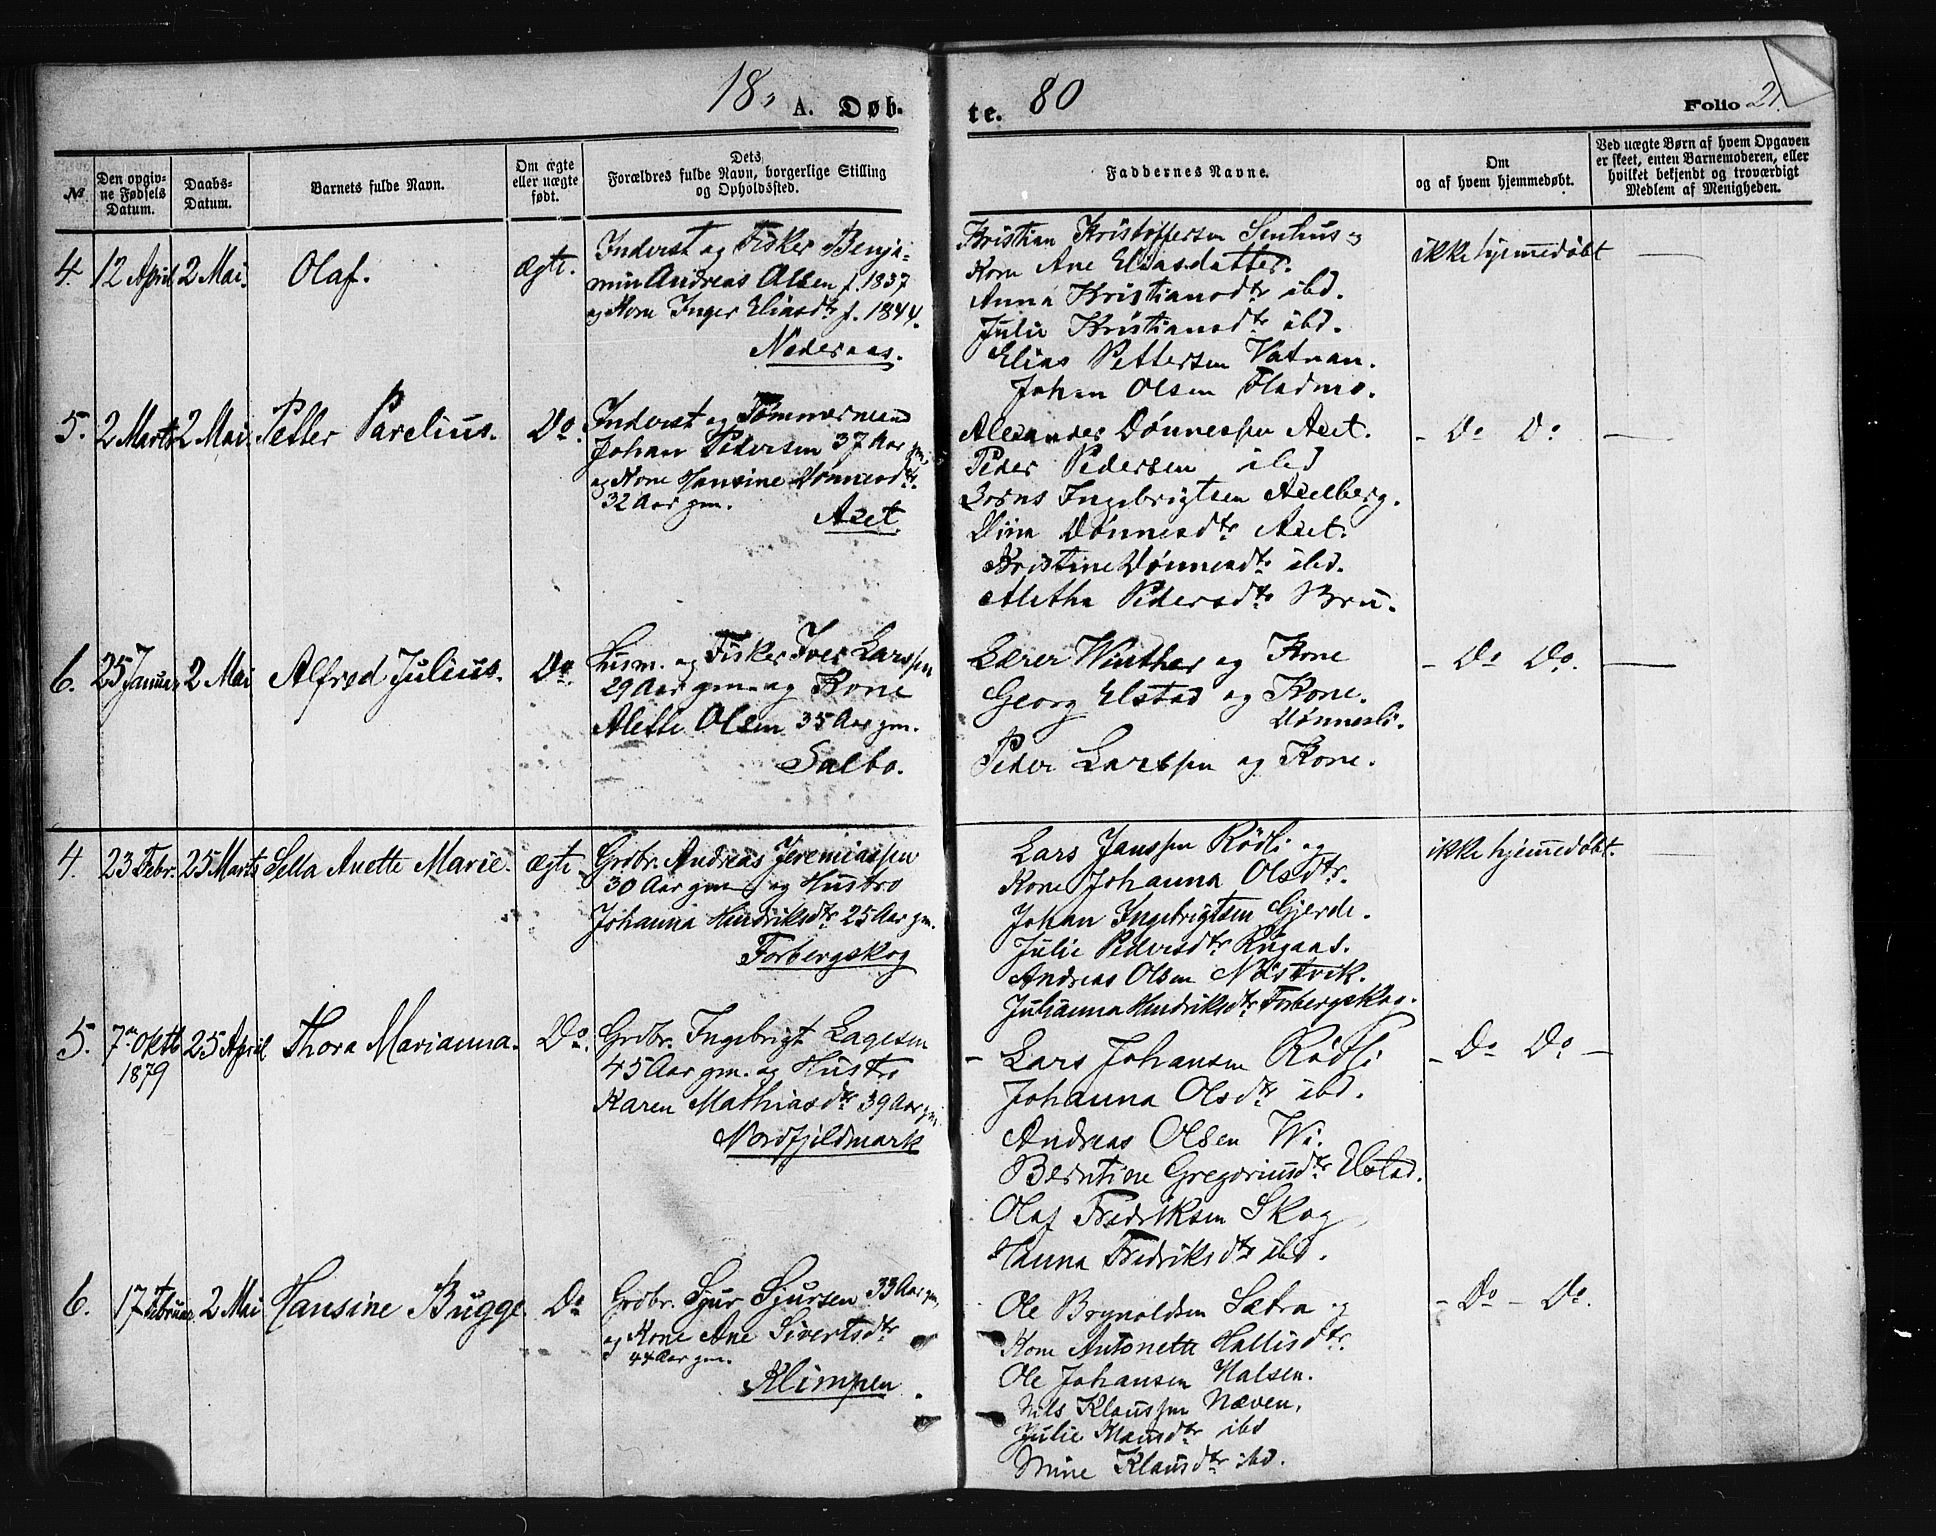 18 A. Døb-
te. 80
Folio 21.
№
Den opgiv-
ne Fødsels
Datum.
Daabs-
Datum.
Barnets fulde Navn.
Om ægte
eller uægte
født.
Dets
Forældres fulde Navn, borgerlige Stilling
og Opholdssted.
Faddernes Navne.
Om
og af hvem hjemmedøbt.
Ved uægte Børn af hvem Opgaven
er skeet, enten Barnemoderen, eller
hvilket bekjendt og troværdigt
Medlem af Menigheden.
4. 12 April 2 Mai. Olaf. ægte.
Inderst og Fisker Benja-
min Andreas Olsen f. 1837
og Kone Inger Eliasdtr f. 1844.
Nederaas.
Kristian Kristoffersen og
Kone Ane Eliasdatter.
Anna Kristiansdtr ibd.
Julie Kristiansdtr ibd.
Elias Pettersen Vatnan.
Johan Olsen Fladmo.
ikke hjemmedøbt
5. 2 Marts 2 Mai. Petter Parelius. Do.
Inderst og Tømmermand
Johan Pedersen 37 Aar gm.
og Kone Hansine Dønnesdtr.
32 Aar gm.
Axet
Alexander Dønnessen Axet.
Peder Pedersen ibd
Lorns Ingebrigtsen Axelberg.
Dina Dønnesdtr Axet.
Kristine Dønnesdtr ibd.
Aletha Pedersdtr Bru.
- Do Do.
6. 25 Januar 2 Mai Alfred Julius. Do.
Husm. og Fisker Iver Larssen
29 Aar gm. og Kone
Alette Olsen 35 Aar gm.
Salbo.
Lærer Winther og Kone
Georg Elstad og Kone.
Dønnesli.
Peder Larssen og Kone.
- Do Do.
4. 23 Febr. 25 Marts Sella Anette Marie. ægte
Grdbr. Andreas Jeremiassen
30 Aar gm. og Hustro
Johanna Hendriksdtr 25 Aar gm.
Forbergskog
Lars Janssen Rødli og
Kone Johanna Olsdtr.
Johan Ingebrigtsen Gjerde.
Julie Pedersdtr Rugaas.
Andreas Olsen Nøstvik.
Julianna Hendriksdtr Forbergskog.
ikke hjemmedøbt.
5. 7de Oktb. 25 April Thora Marianna. Do.
1879
Grdbr. Ingebrigt Lagesen
45 Aar gm. og Hustro
Karen Mathiasdtr 39 Aar gm.
Nordfjeldmark
- Lars Johansen Rødli
Johanna Olsdtr ibd.
Andreas Olsen Wi.
Berntine Gregoriusdtr Ulstad.
Olaf Fredriksen Skog
Hanna Fredriksdtr ibd.
- Do Do -
6. 17 Februar 2 Mai Hansine Bugge. Do
Grdbr. Sjur Sjursen 33 Aar gm,
og Kone Ane Sivertsdtr
44 Aar gm.
Klimpen.
Ole Brynoldsen Sætra og
Kone Antonette Hallisdtr.
Ole Johansen Halsen.
Nils Klaussen Næven,
Julie Hansdtr ibd
Mine Klausdtr ibd.
- Do - Do.